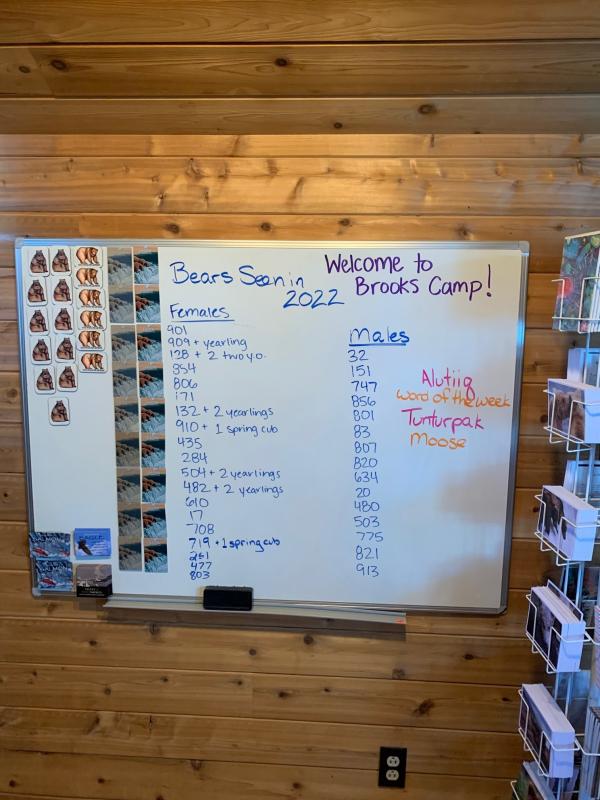 Bears Seen in 2022
Welcome to
Brooks Camp!
Females
901
909 + yearling
128 + 2 two y.o.
854
806
171
132 + 2 yearlings
910 + 1 spring cub
435
284
504 + 2 yearlings
482 + 2 yearlings
610
17
708
719 + 1 spring cub
261
477
803
Males
32
151
747
856
801
83
807
820
634
20
480
503
775
821
913
Alutiiq
word of the week
Tunturpak
Moose